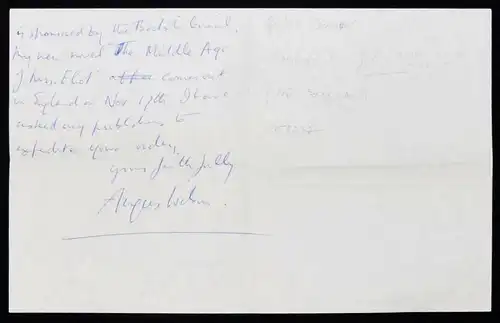 is sponsored by the British Council.
My new novel The Middle Age
of Mrs. Eliot comes out
in England on Nov 17th. I have
asked my publishers to
expedite your order,
yours faithfully
Angus Wilson.